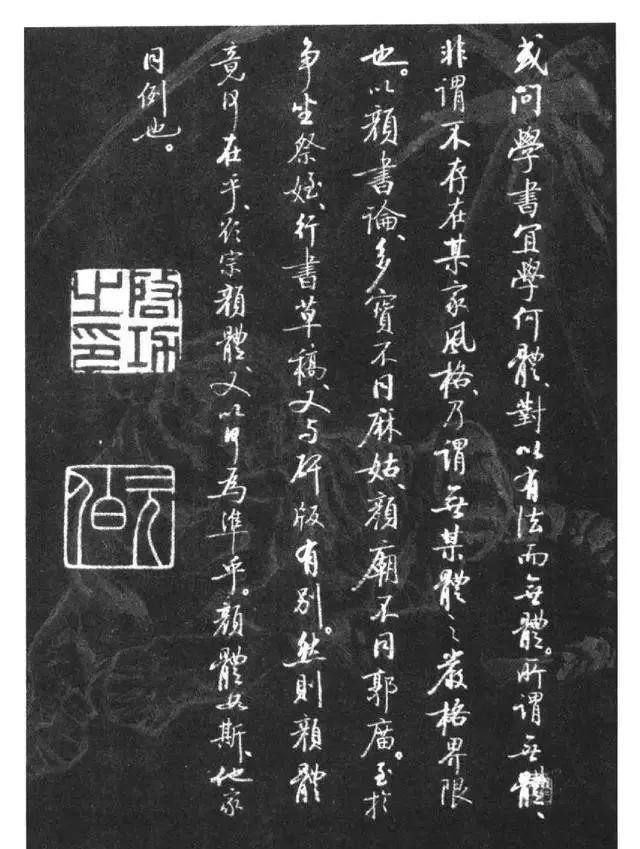 或问學書宜學何體、對以有法而無體。所謂無體、
非謂不存在某家風格、乃謂無某體之嚴格界限
也。以顏書論、多寶不同麻姑、顏廟不同郭廣。至於
争坐祭姪、行書草稿、又与碑版有别。然則顏體
竟何在乎、欲宗顏體、又以何為準乎。顏體如斯、他家
同例也。
啟功
之印
元伯